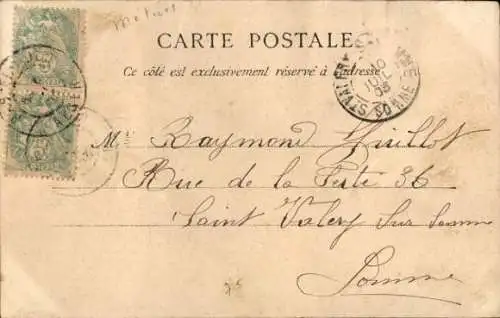 CARTE POSTALE
Ce côté est exclusivement réservé à l'adresse
Mr Raymond Guillot
Rue de la Ferté 36
Saint Valery Sur Somme
Somme